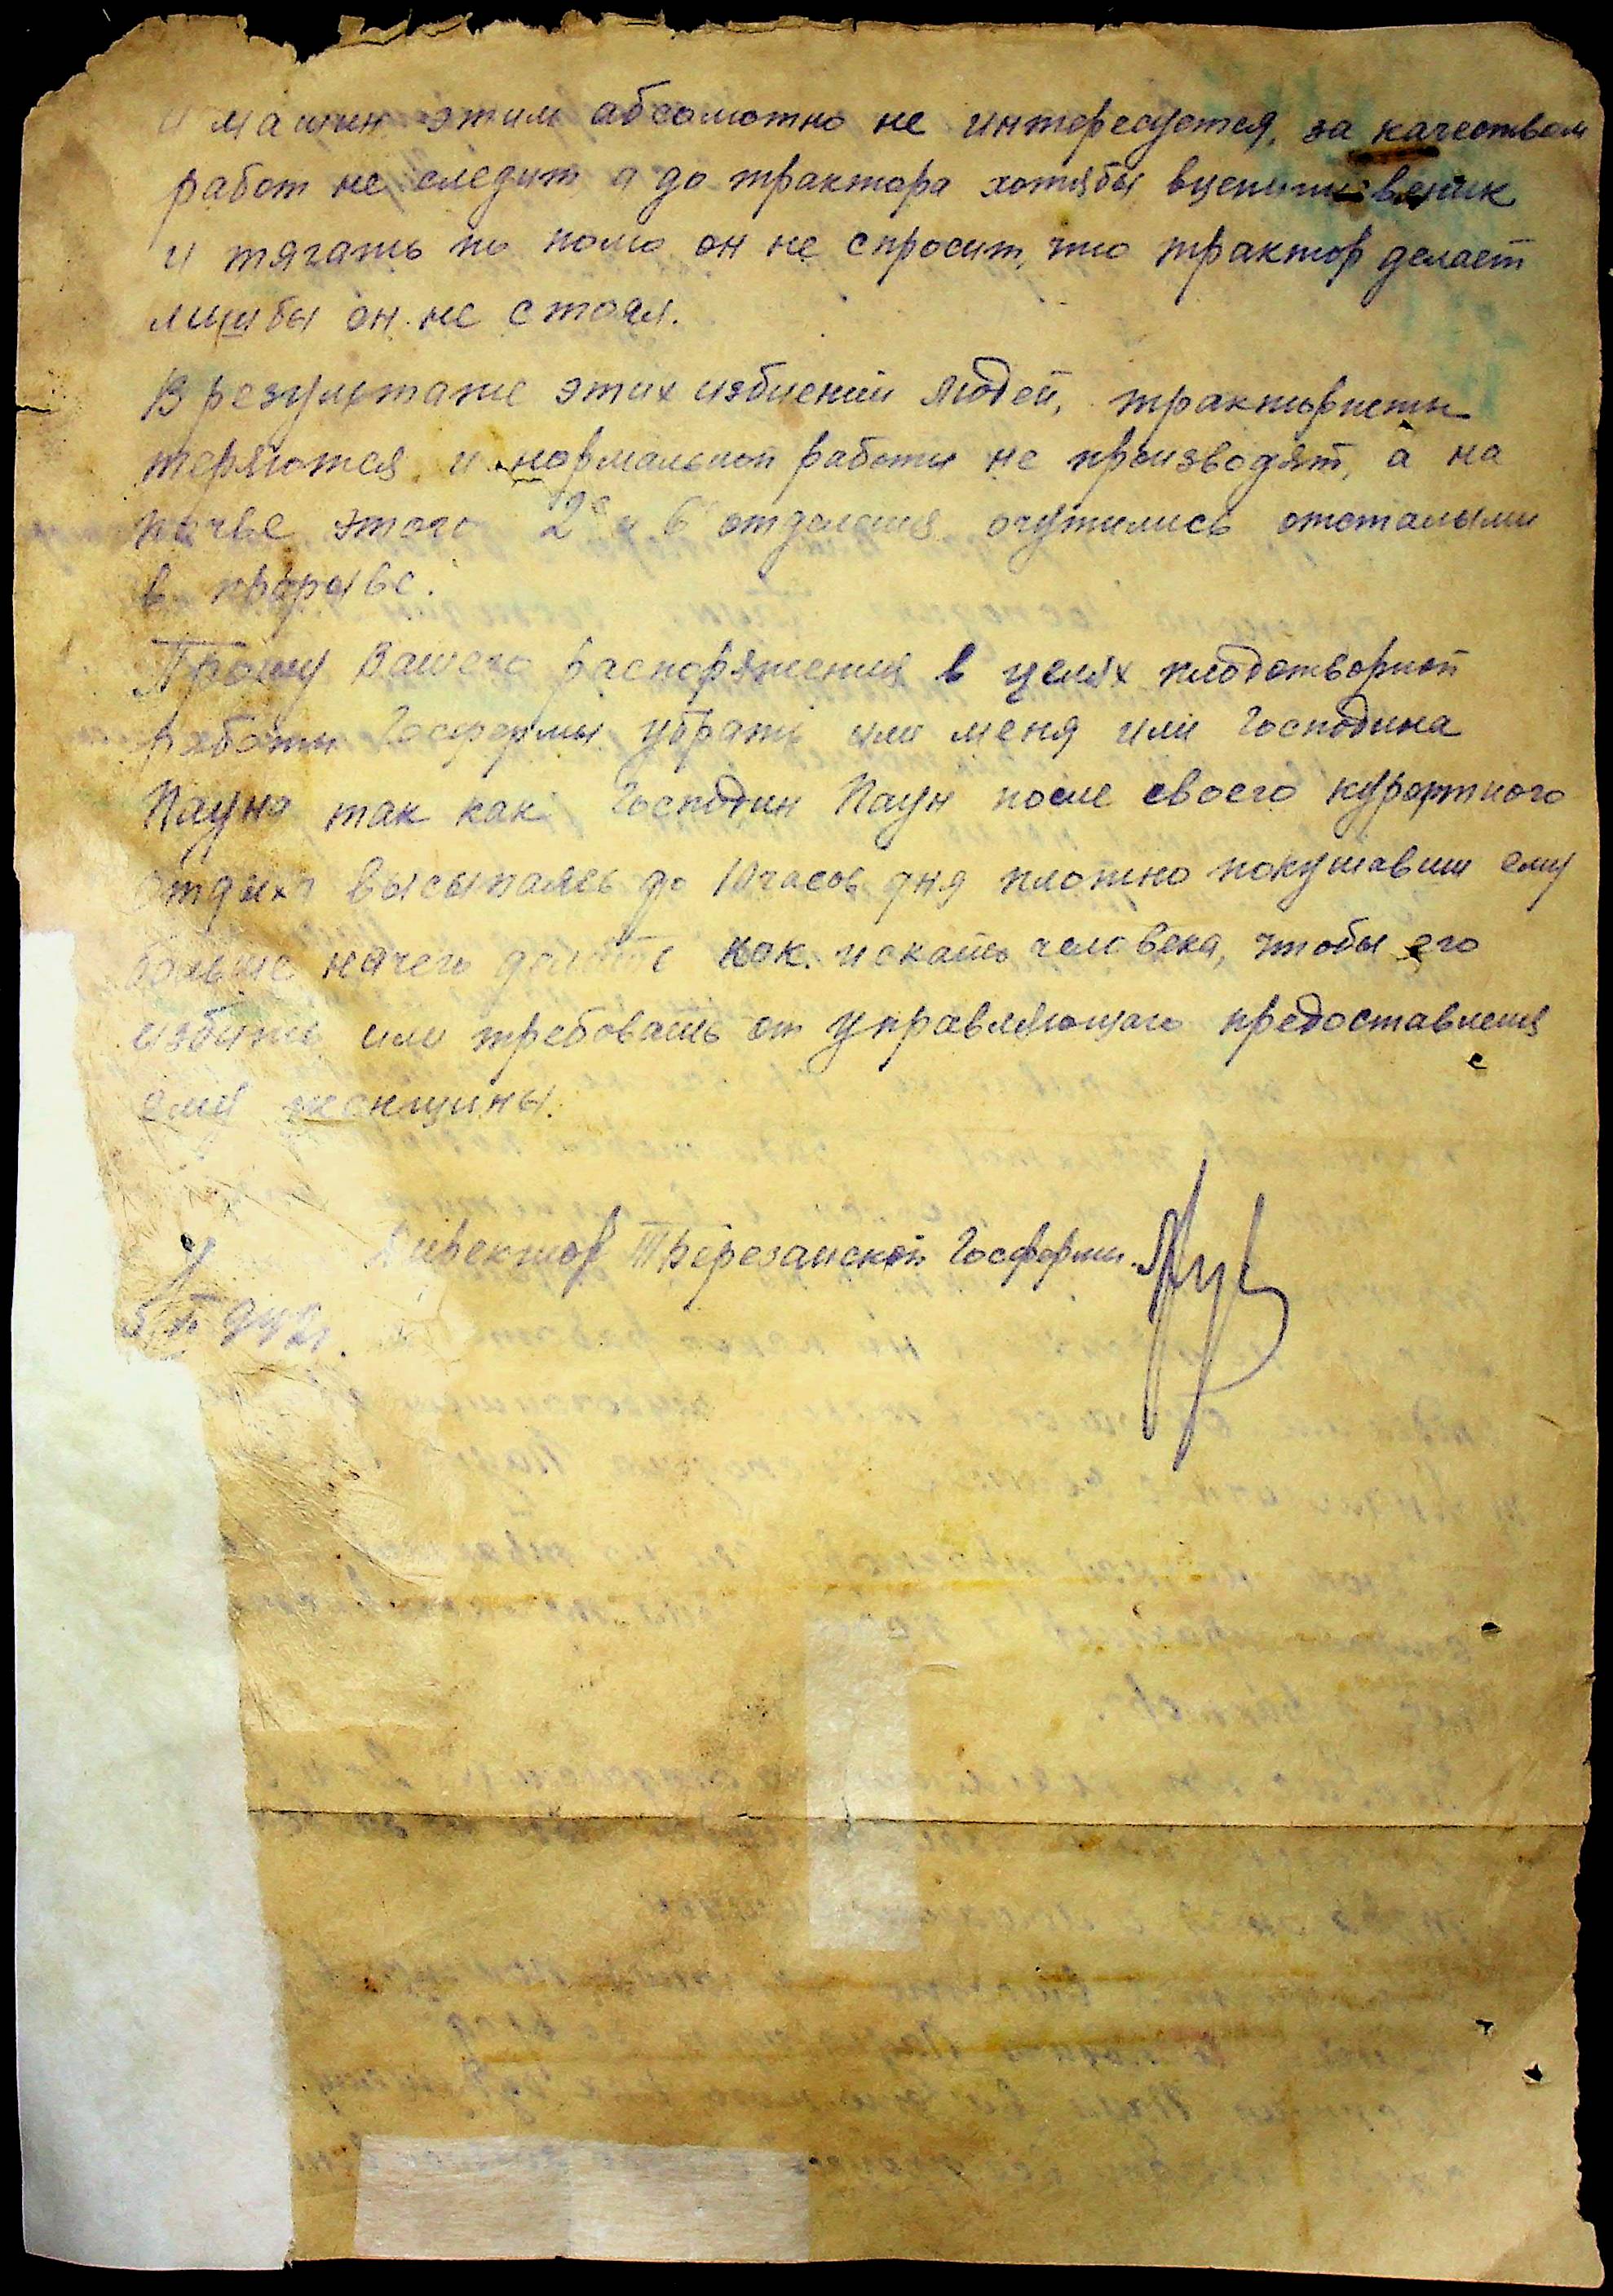 и машин этим абсолютно не интересуется, за качеством
работ не следит а до трактора хотябы вцепить веник
и тягать по полю он не спросит, что трактор делает
лишбы он не стоял.
В результате этих избиений людей, трактористы
теряются и нормальной работы не производят, а на
почве этого 2е и 6е отделения очутились отсталыми
в прорыве.
Прошу Вашего распоряжения в целях плодотворной
работы Госфермы убрать или меня или Господина
Пауна так как Господин Паун после своего курортного
отдыха высыпаясь до 10 часов дня плотно покушавши ему
больше нечего делать как искать человека, чтобы его
избить или требовать от управляющего предоставления
ему женщины.
Директор Т Березанской Госфермы
942г.